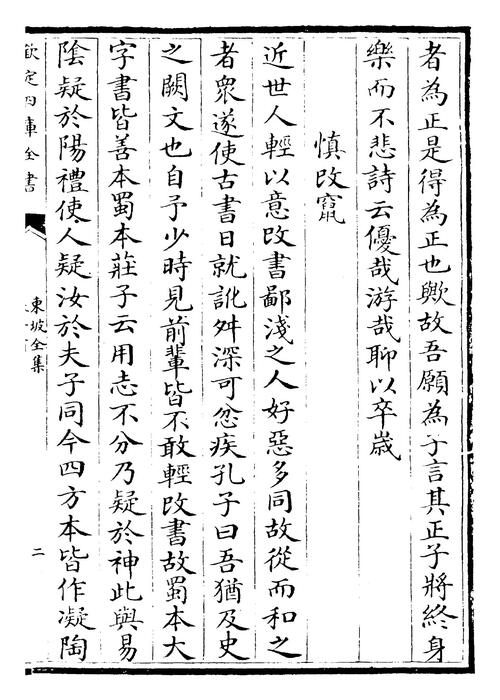 者為正是得為正也歟故吾願為子言其正子將終身
樂而不悲詩云優哉游哉聊以卒歲
慎改竄
近世人輕以意改書鄙淺之人好惡多同故從而和之
者衆遂使古書日就訛舛深可忿疾孔子曰吾猶及史
之闕文也自予少時見前輩皆不敢輕改書故蜀本大
字書皆善本蜀本莊子云用志不分乃疑於神此與易
陰疑於陽禮使人疑汝於夫子同今四方本皆作凝陶
欽定四庫全書
東坡全集
二